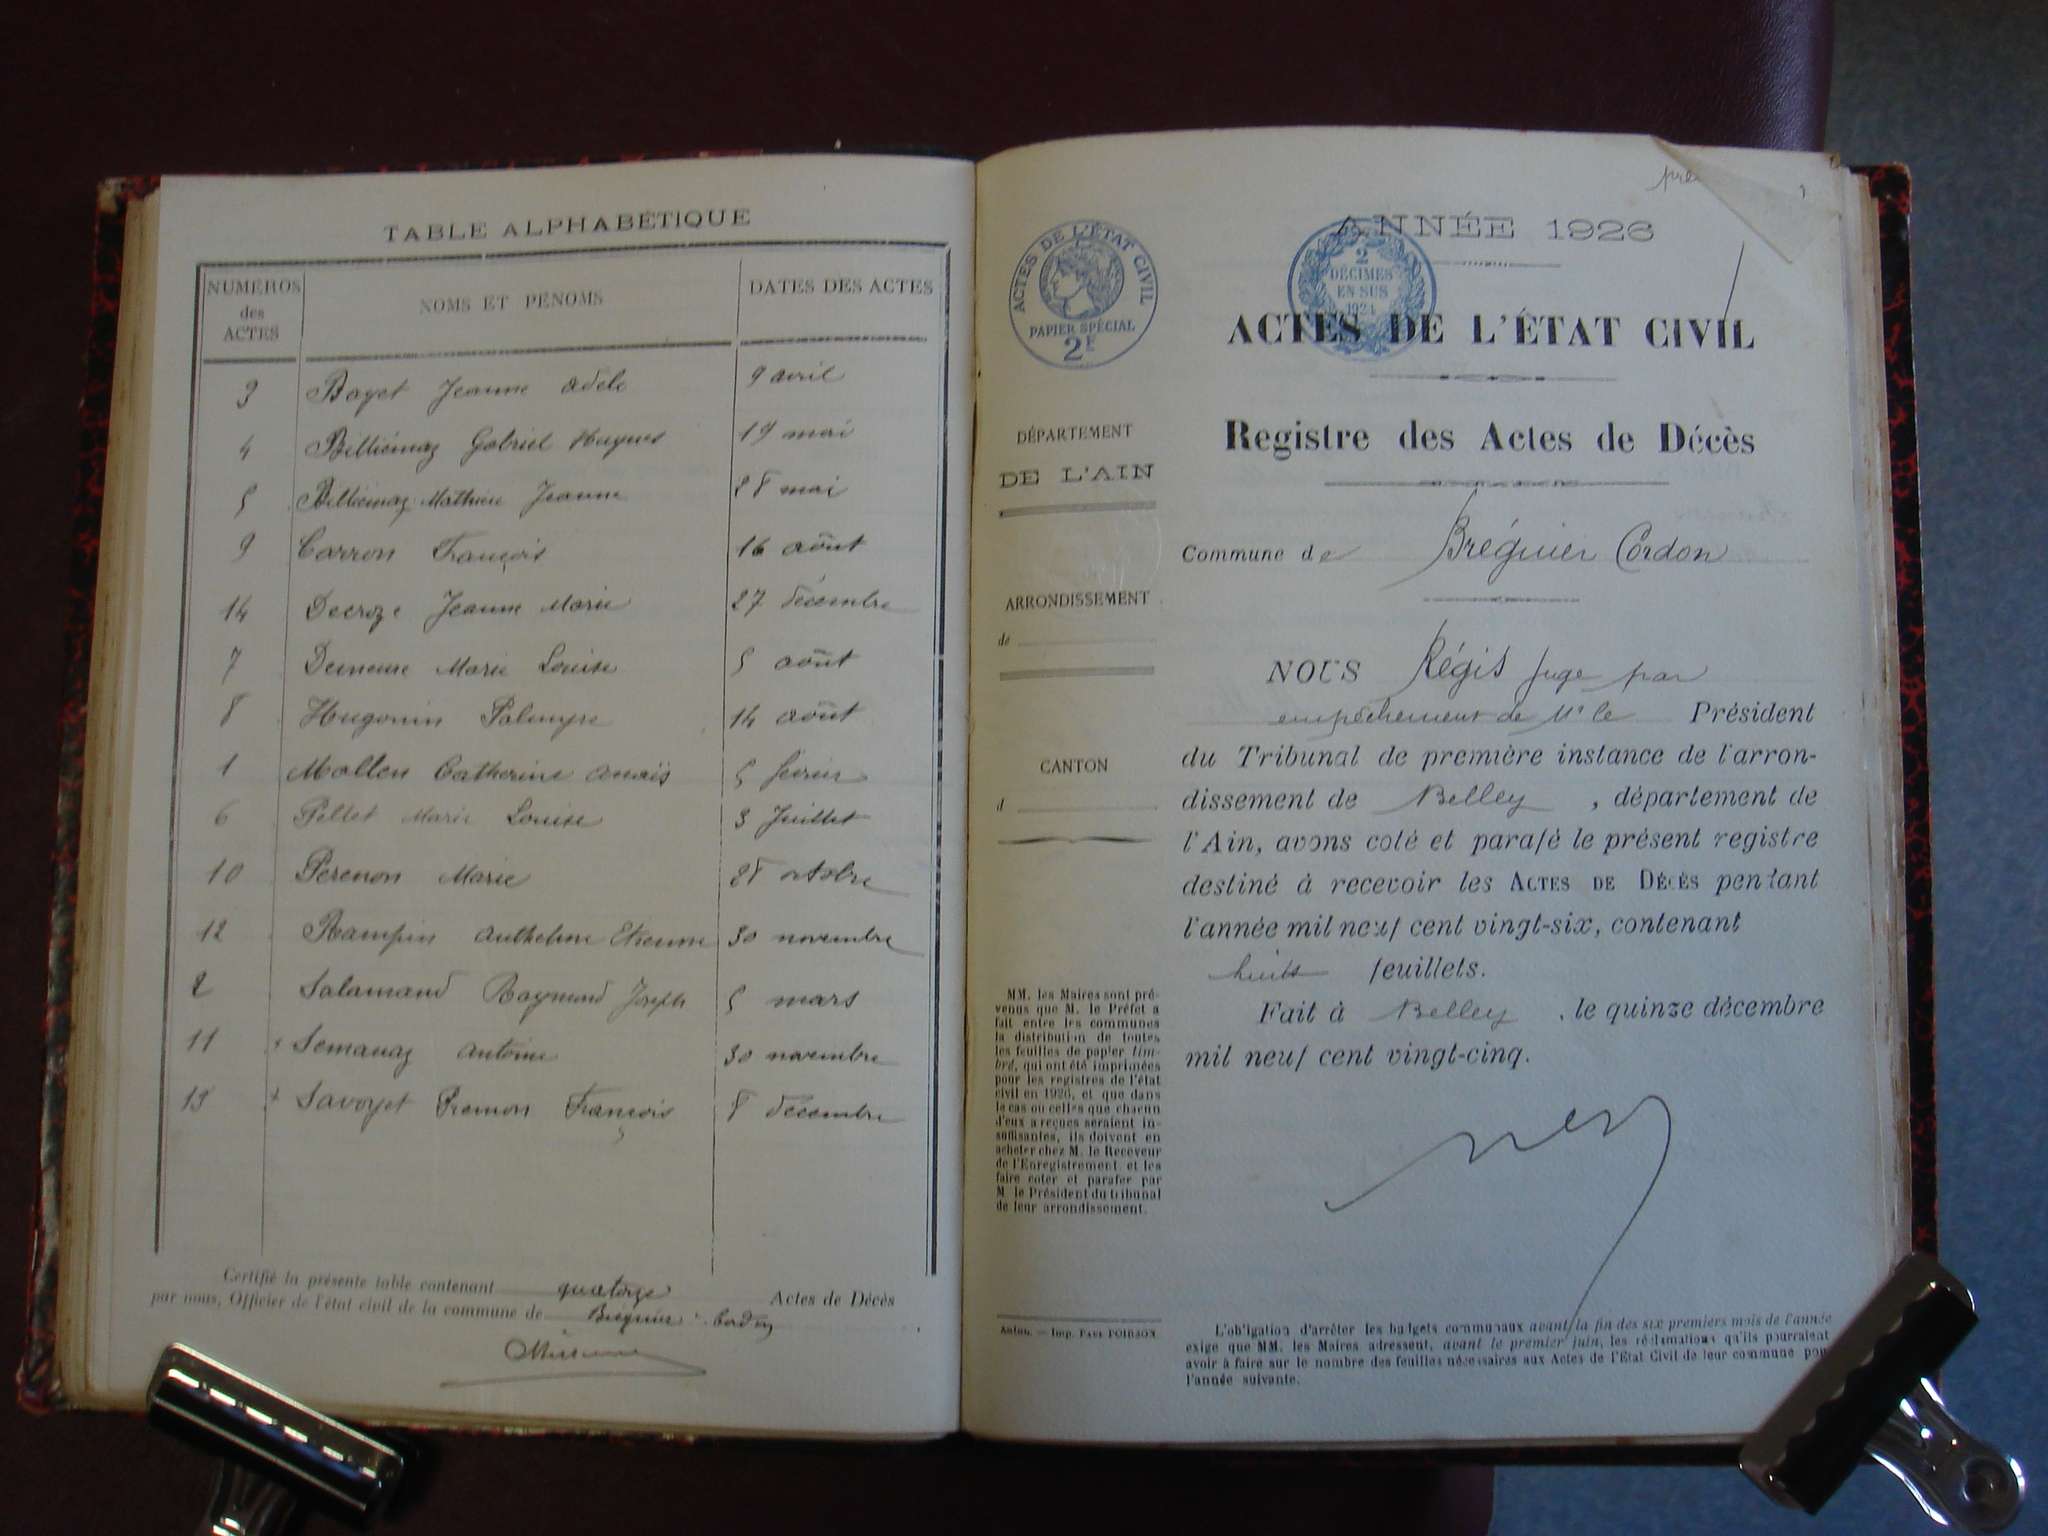 TABLE ALPHABÉTIQUE
NUMÉROS des ACTES NOMS ET PÉNOMS DATES DES ACTES
3 Bayet Jeanne Adèle 9 avril
4 Billiémaz Gabriel Hugues 19 mai
5 Billiémaz Mathieu Jeanne 28 mai
9 Carron François 16 août
14 Decroze Jeanne Marie 27 décembre
7 Demeure Marie Louise 5 août
8 Hugonin Palmyre 14 août
1 Mollen Catherine Anaïs 5 février
6 Pellet Marie Louise 3 Juillet
10 Perenon Marie 28 octobre
12 Rampin Anthelme Etienne 30 novembre
2 Salamand Raymond Joseph 5 mars
11 Semanaz Antoine 30 novembre
13 Savoyet Premon François 8 décembre
Certifié la présente table contenant quatorze Actes de Décès
par nous, Officier de l'état civil de la commune de Brégnier-Cordon
ANNÉE 1926
ACTES DE L'ÉTAT CIVIL
PAPIER SPÉCIAL
2F
2
DÉCIMES
EN SUS
1924
ACTES DE L'ÉTAT CIVIL
Registre des Actes de Décès
DÉPARTEMENT
DE L'AIN
ARRONDISSEMENT
de
CANTON
d
Commune de Brégnier Cordon
NOUS Régis juge par
empêchement de Mr le Président
du Tribunal de première instance de l'arron-
dissement de Belley, département de
l'Ain, avons coté et parafé le présent registre
destiné à recevoir les ACTES DE DÉCÈS pendant
l'année mil neuf cent vingt-six, contenant
huit feuillets.
Fait à Belley, le quinze décembre
mil neuf cent vingt-cinq.
MM. les Maires sont pré-
venus que M. le Préfet a
fait entre les communes
la distribution de toutes
les feuilles de papier tim-
bré, qui ont été imprimées
pour les registres de l'état
civil en 1926, et que dans
le cas où celles que chacun
d'eux a reçues seraient in-
suffisantes, ils doivent en
acheter chez M. le Receveur
de l'Enregistrement et les
faire coter et parafer par
M. le Président du tribunal
de leur arrondissement.
Imp. PAUL POIRSON
L'obligation d'arrêter les budgets communaux avant la fin des six premiers mois de l'année
exige que MM. les Maires adressent, avant le premier juin, les réclamations qu'ils pourraient
avoir à faire sur le nombre des feuilles nécessaires aux Actes de l'État Civil de leur commune pour
l'année suivante.